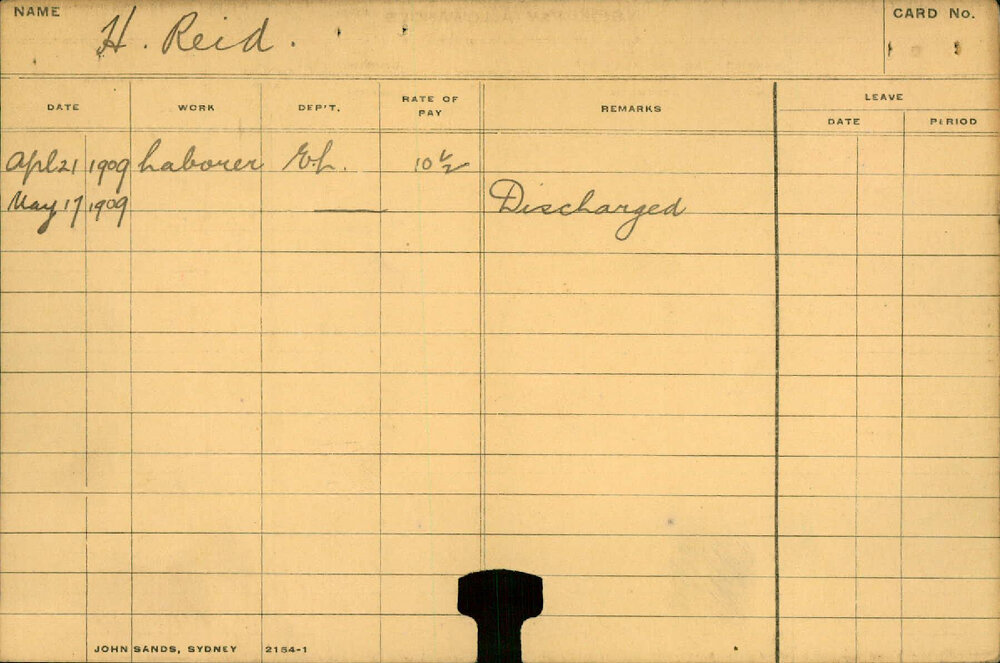 NAME H. Reid. CARD No.
DATE WORK DEP'T. RATE OF PAY REMARKS LEAVE
DATE PERIOD
Apl 21 1909 Laborer 10½
May 17 1909 Discharged
JOHN SANDS, SYDNEY 2154-1